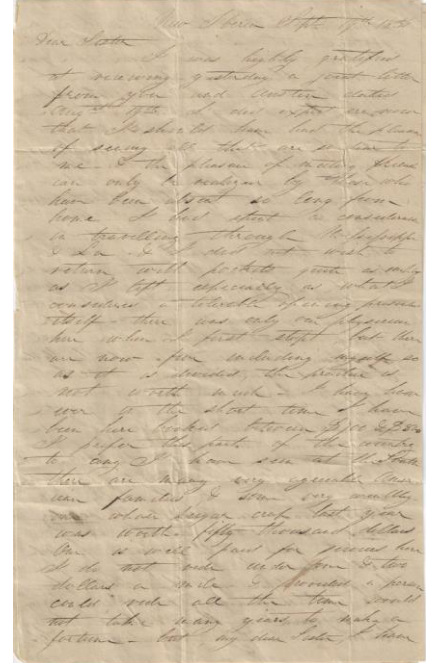 New Iberia Sept 19th
Dear Sister
I was highly gratified
at receiving yesterday a joint letter
from you and dated
Aug I did expect
that I should have had the pleasure
of seeing all that are so dear to
me & the pleasure of meeting
can only be realized by those who
have been absent so long from
home I had spent
in travelling through Mississippi
& La & I did not wish to
return with pockets just as
as I left especially as what I
considered a tolerable opening
itself there was only one physician
here when I first stopt but there
are now four including myself so
as it is divided the practice is
not worth much I have
ever in the short time I have
been here booked between $
I prefer this part of the country
to any I have seen at the South
there are many very agreeable
families & some very wealthy
one whose sugar crop last year
was worth fifty thousand dollars
One is well paid for services here
I do not ride under four & two
dollars a mile & provided a person
could ride all the time would
not take many years to make a
fortune but my dear Sister I have